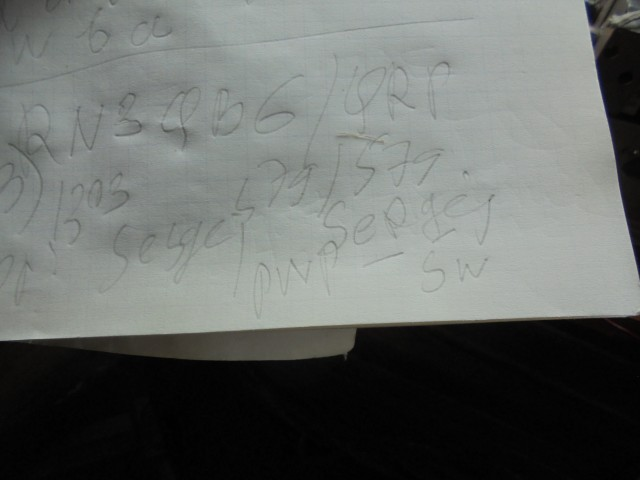 w 6 a
RN3QBG/QRP
3) 1303 579/579.
op. Sergej / Sergej
pwp - 5w